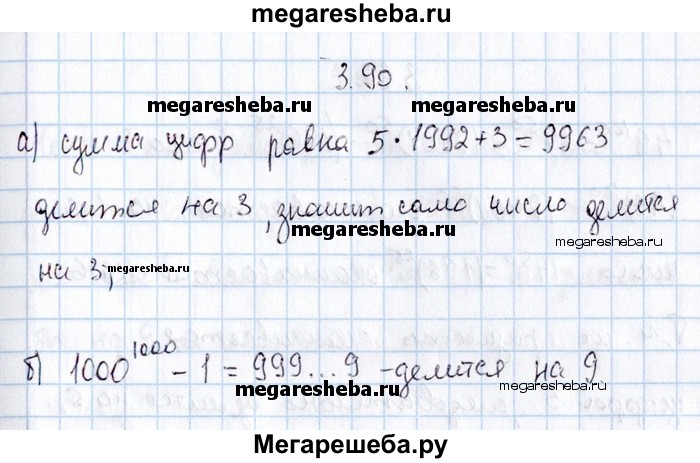 megaresheba.ru
3.90.
megaresheba.ru megaresheba.ru
а) сумма цифр равна 5·1992+3=9963
делится на 3, значит само число делится
megaresheba.ru megaresheba.ru
на 3;
megaresheba.ru
б) 1000^1000 - 1 = 999...9 - делится на 9
megaresheba.ru
Мегарешеба.ру